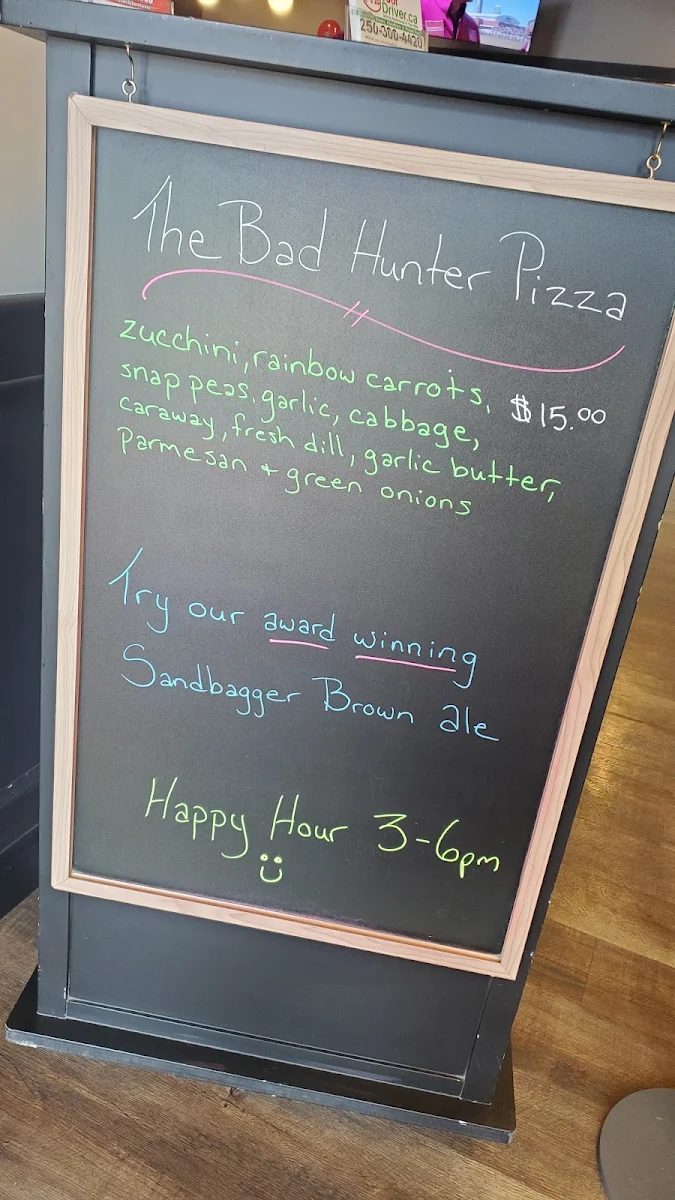 Driver.ca
250-300-4420
The Bad Hunter Pizza
zucchini, rainbow carrots,
snap peas, garlic, cabbage,
$15.00
caraway, fresh dill, garlic butter,
parmesan + green onions
Try our award winning
Sandbagger Brown ale
Happy Hour 3-6pm